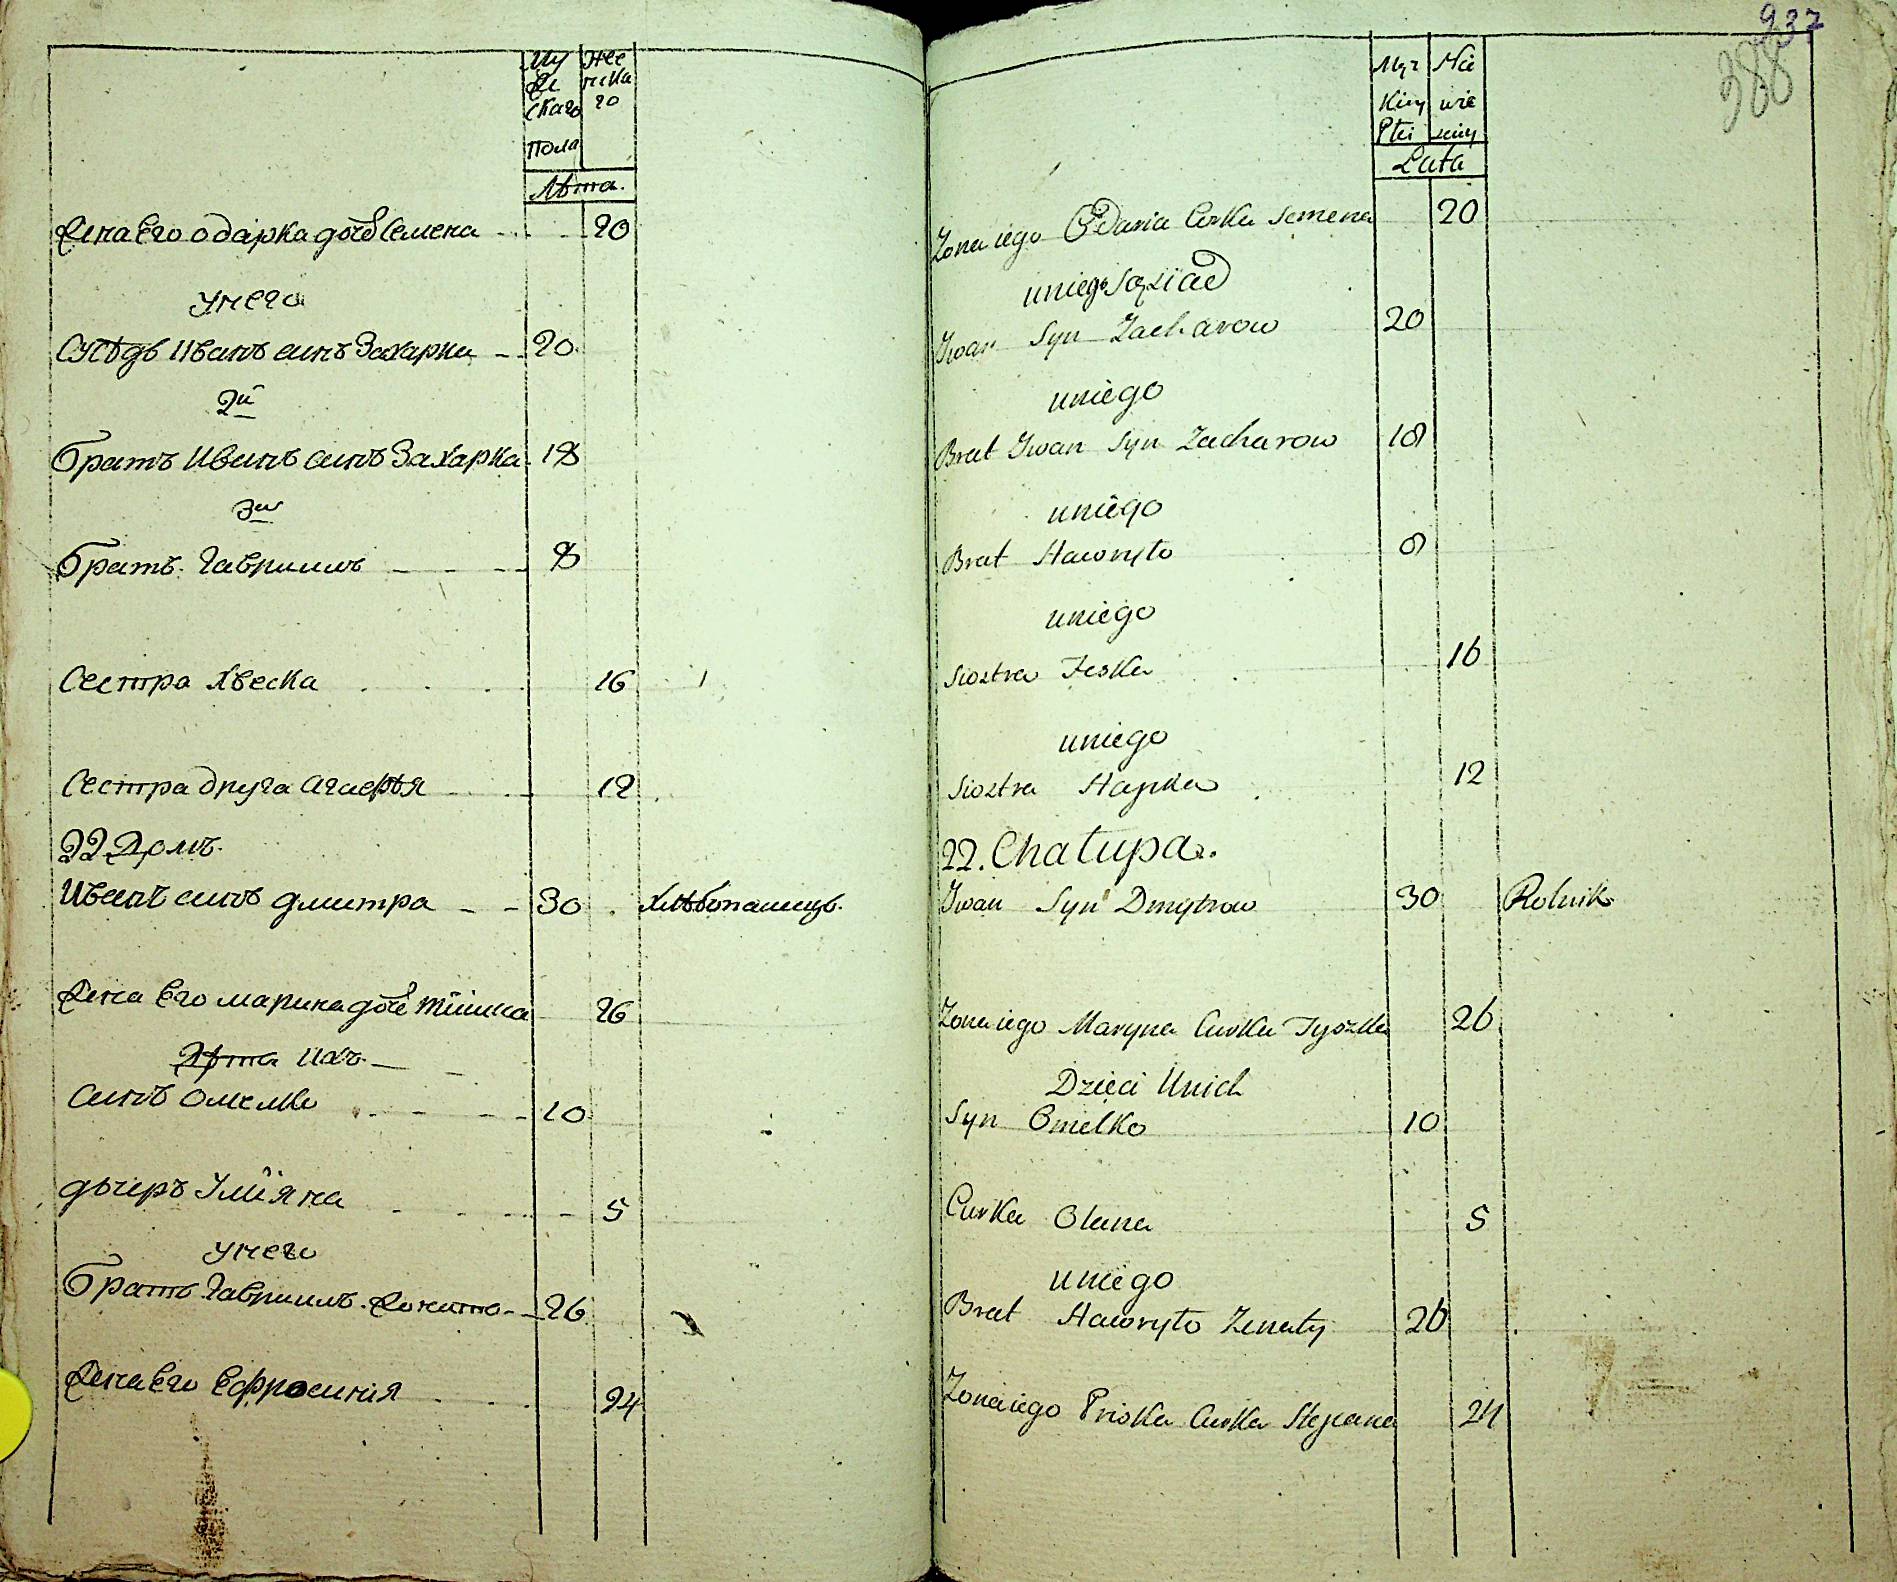 Му Же
же нска
скаго го
пола
Лѣта.
Жена Его одарка дочь Семена 20
унего
Сусѣдъ Иванъ синъ Захарка 20
2й
братъ Иванъ синъ Захарка 18
3й
братъ Гаврилъ 8
Сестра Хвеска 16
Сестра друга Агафья 12
22 Домъ.
Иванъ синъ дмитра 30 хлѣбопашецъ.
Жена Его марина дочь тишка 26
Дѣти ихъ
синъ омелко 10
дочеръ Улїяна 5
унего
братъ Гаврилъ жонато 26
Жена Его Ефросинія 24
937
388
Męz Nie
Kiey wie
Płci sciey
Lata
Zona iego Odaria Curka Semena 20
uniego Sąsiad
Jwan Syn Zacharow 20
uniego
Brat Jwan Syn Zacharow 18
uniego
Brat Hawryło 8
uniego
Siostra Feska 16
uniego
Siostra Hapka 12
22. Chałupa.
Jwan Syn Dmytrow 30 Rolnik
Zona iego Maryna Curka Tyszka 26
Dzieci Unich
Syn Omelko 10
Curka Olana 5
uniego
Brat Hawryło Zenaty 26
Zona iego Priska Curka Stepana 24